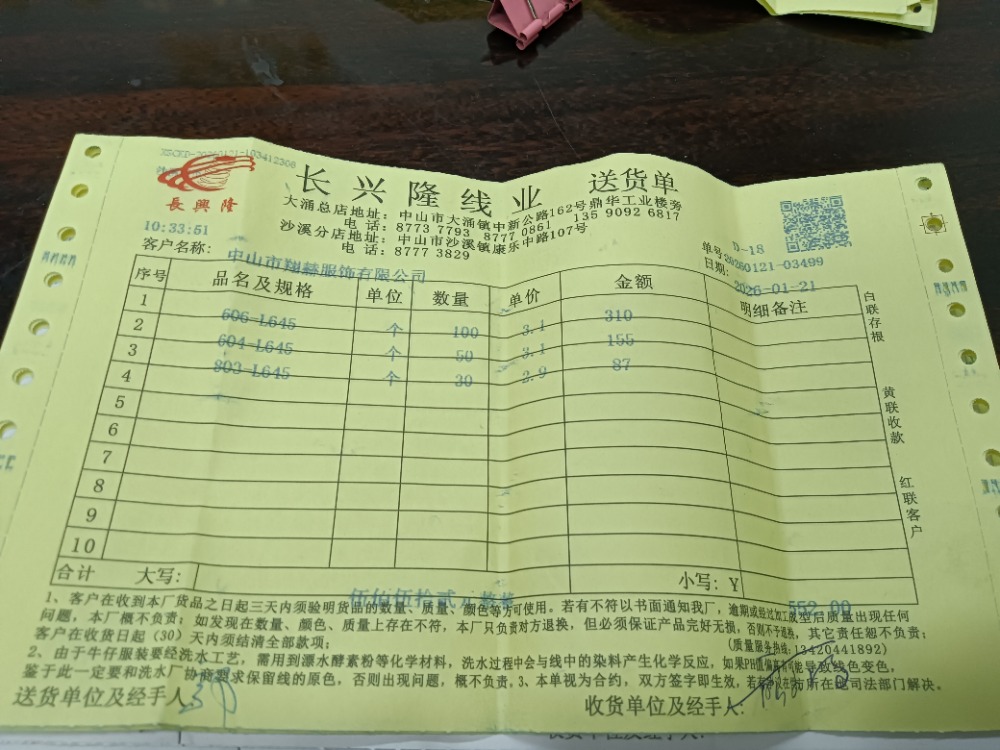 XSCKD-20260121-103412308
長興隆
长兴隆线业 送货单
大涌总店地址：中山市大涌镇中新公路162号鼎华工业楼旁
电话：8773 7793 8777 0861 135 9092 6817
沙溪分店地址：中山市沙溪镇康乐中路107号
电话：8777 3829
10:33:51
D-18
单号20260121-03499
客户名称：中山市翔赫服饰有限公司
日期：2026-01-21
序号 品名及规格 单位 数量 单价 金额 明细备注
1 606-L645 个 100 3.1 310
2 604-L645 个 50 3.1 155
3 803-L645 个 30 2.9 87
4
5
6
7
8
9
10
合计 大写： 伍佰伍拾贰 小写：Y 552.00
白联存根
黄联收款
红联客户
1、客户在收到本厂货品之日起三天内须验明货品的数量、质量、颜色等方可使用。若有不符以书面通知我厂，逾期或经过加工成型后质量出现任何
问题，本厂概不负责；如发现在数量、颜色、质量上存在不符，本厂只负责对方退换，但必须保证产品完好无损，否则不予退换，其它责任恕不负责；
客户在收货日起（30）天内须结清全部款项； (质量服务热线:13420441892)
2、由于牛仔服装要经洗水工艺，需用到漂水酵素粉等化学材料，洗水过程中会与线中的染料产生化学反应，如果PH值偏高有可能导致线色变色，
鉴于此一定要和洗水厂协商要求保留线的原色，否则出现问题，概不负责。3、本单视为合约，双方签字即生效，若 所在地司法部门解决。
送货单位及经手人:
收货单位及经手人: